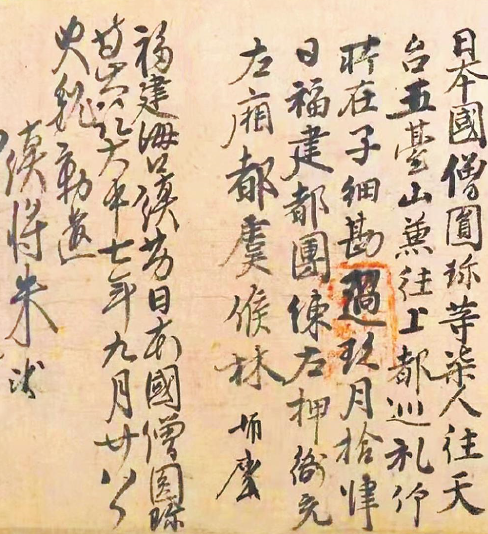 日本國僧圓珎等柒人往天
台五臺山兼往上都巡礼仰
所在子細勘過玖月拾肆
日福建都團練左押衙充
左廂都虞候林師廙
福建海口鎮勘日本國僧圓珎
等出訖大中七年九月廿八日
史魏勤過
鎮將朱